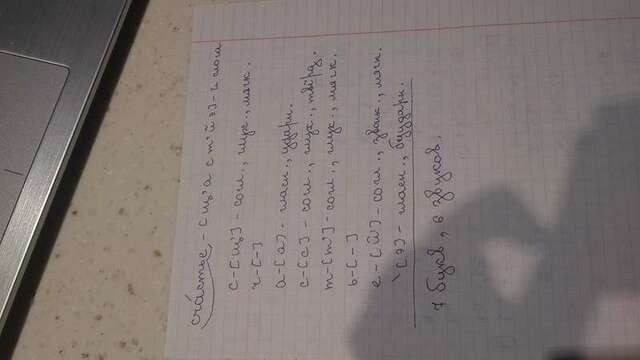 счáстье - [щ'астˈй э] - 2 слога
с - [щ'] - согл., глух., мягк.
ч - [-]
а - [а] - гласн., ударн.
с - [с] - согл., глух., твёрд.
т - [т'] - согл., глух., мягк.
ь - [-]
е - [й'] - согл., звонк., мягк.
\ [э] - гласн., безударн.
7 букв, 6 звуков.